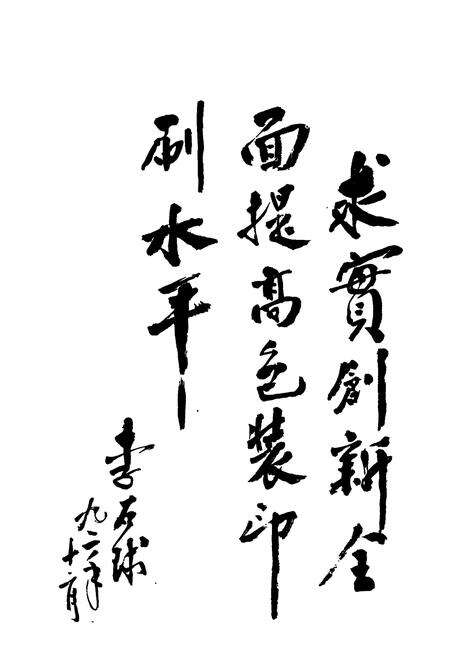 求實創新全
面提高包裝印
刷水平
李石球
九二年
十一月